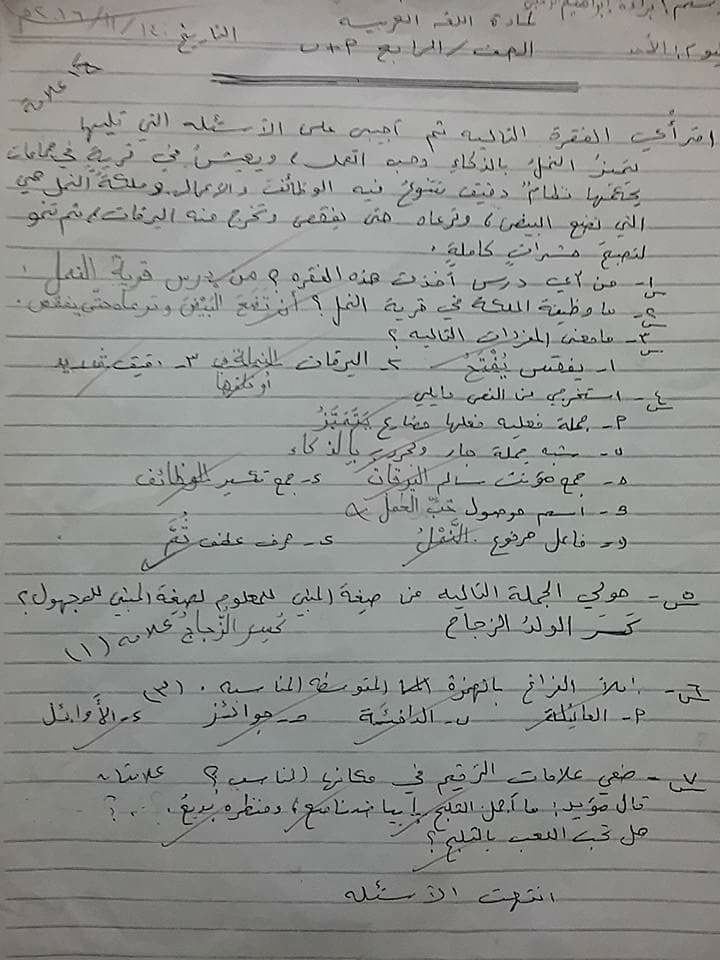 لمادة اللغه العربيه
الصف/الرابع ٢+ب التاريخ ١٤/١١/٢٠١٦م
علامة
اقرأي الفقرة التاليه ثم أجيبي على الأسئله التي تليها
يتميزُ النملُ بالذكاءِ وحب العمل، ويعيشُ في قريةٍ في جماعات
نظامٌ دقيق تتنوعُ فيه الوظائف والأعمال، وملكة النمل هي
التي تضع البيض، وترعاه حتى يفقس وتخرج منه اليرقات، ثم تنمو
لتصبحَ حشراتٍ كاملةٍ.
س١- من أي درس أخذت هذه الفقره؟ من درس قرية النمل.
س٢- ما وظيفة الملكة في قرية النمل؟ أن تضع البيض وترعاه حتى يفقس.
س٣- ما معنى المفردات التاليه؟
١- يفقس يُفْتَحُ ٢- اليرقات ٣- دقيق شديد
س٤- استخرجي من النص ما يلي
٢- جملة فعليه فعلها مضارع يَتَمَيَّزُ
ب- شبه جملة جار ومجرور بالذكاء
ج- جمع مؤنث سالم اليرقات د- جمع تكسير الوظائف
هـ- اسم موصول
و- فاعل مرفوع النَّمْلُ ي- حرف عطف ثُمَّ
س٥- حولي الجملة التاليه من صيغة المبني للمعلوم لصيغة المبني للمجهول؟
كَسَرَ الولدُ الزجاج كُسِرَ الزّجاجُ علامه (١)
س٦- املأ الفراغ بالهمزة المتوسطه المناسبه. (٣)
٢- العائلة ب- الدافئة ج- جوائز د- الأوائل
س٧- ضعي علامات الترقيم في مكانها المناسب؟ علامتان
قال مؤيد: ما أجمل الثلج! بياضه ناصع، ومنظره بديع.
هل تحب اللعب بالثلج؟
انتهت الأسئله